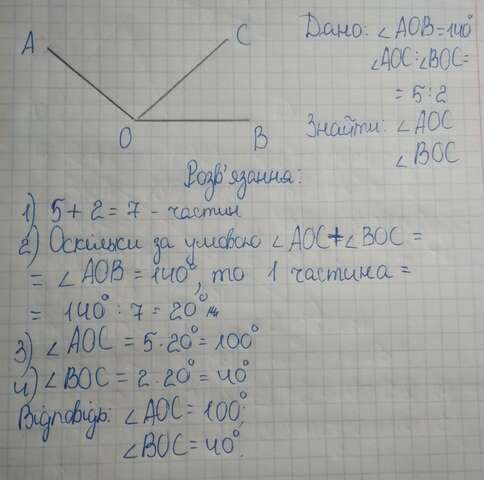 A
C
O
B
Дано: ∠AOB=140°
∠AOC:∠BOC=
= 5:2
Знайти: ∠AOC
∠BOC
Розв'язання:
1) 5+2=7 - частин
2) Оскільки за умовою ∠AOC+∠BOC =
= ∠AOB = 140°, то 1 частина =
= 140° : 7 = 20°
3) ∠AOC = 5·20° = 100°
4) ∠BOC = 2·20° = 40°
Відповідь: ∠AOC = 100°;
∠BOC = 40°.